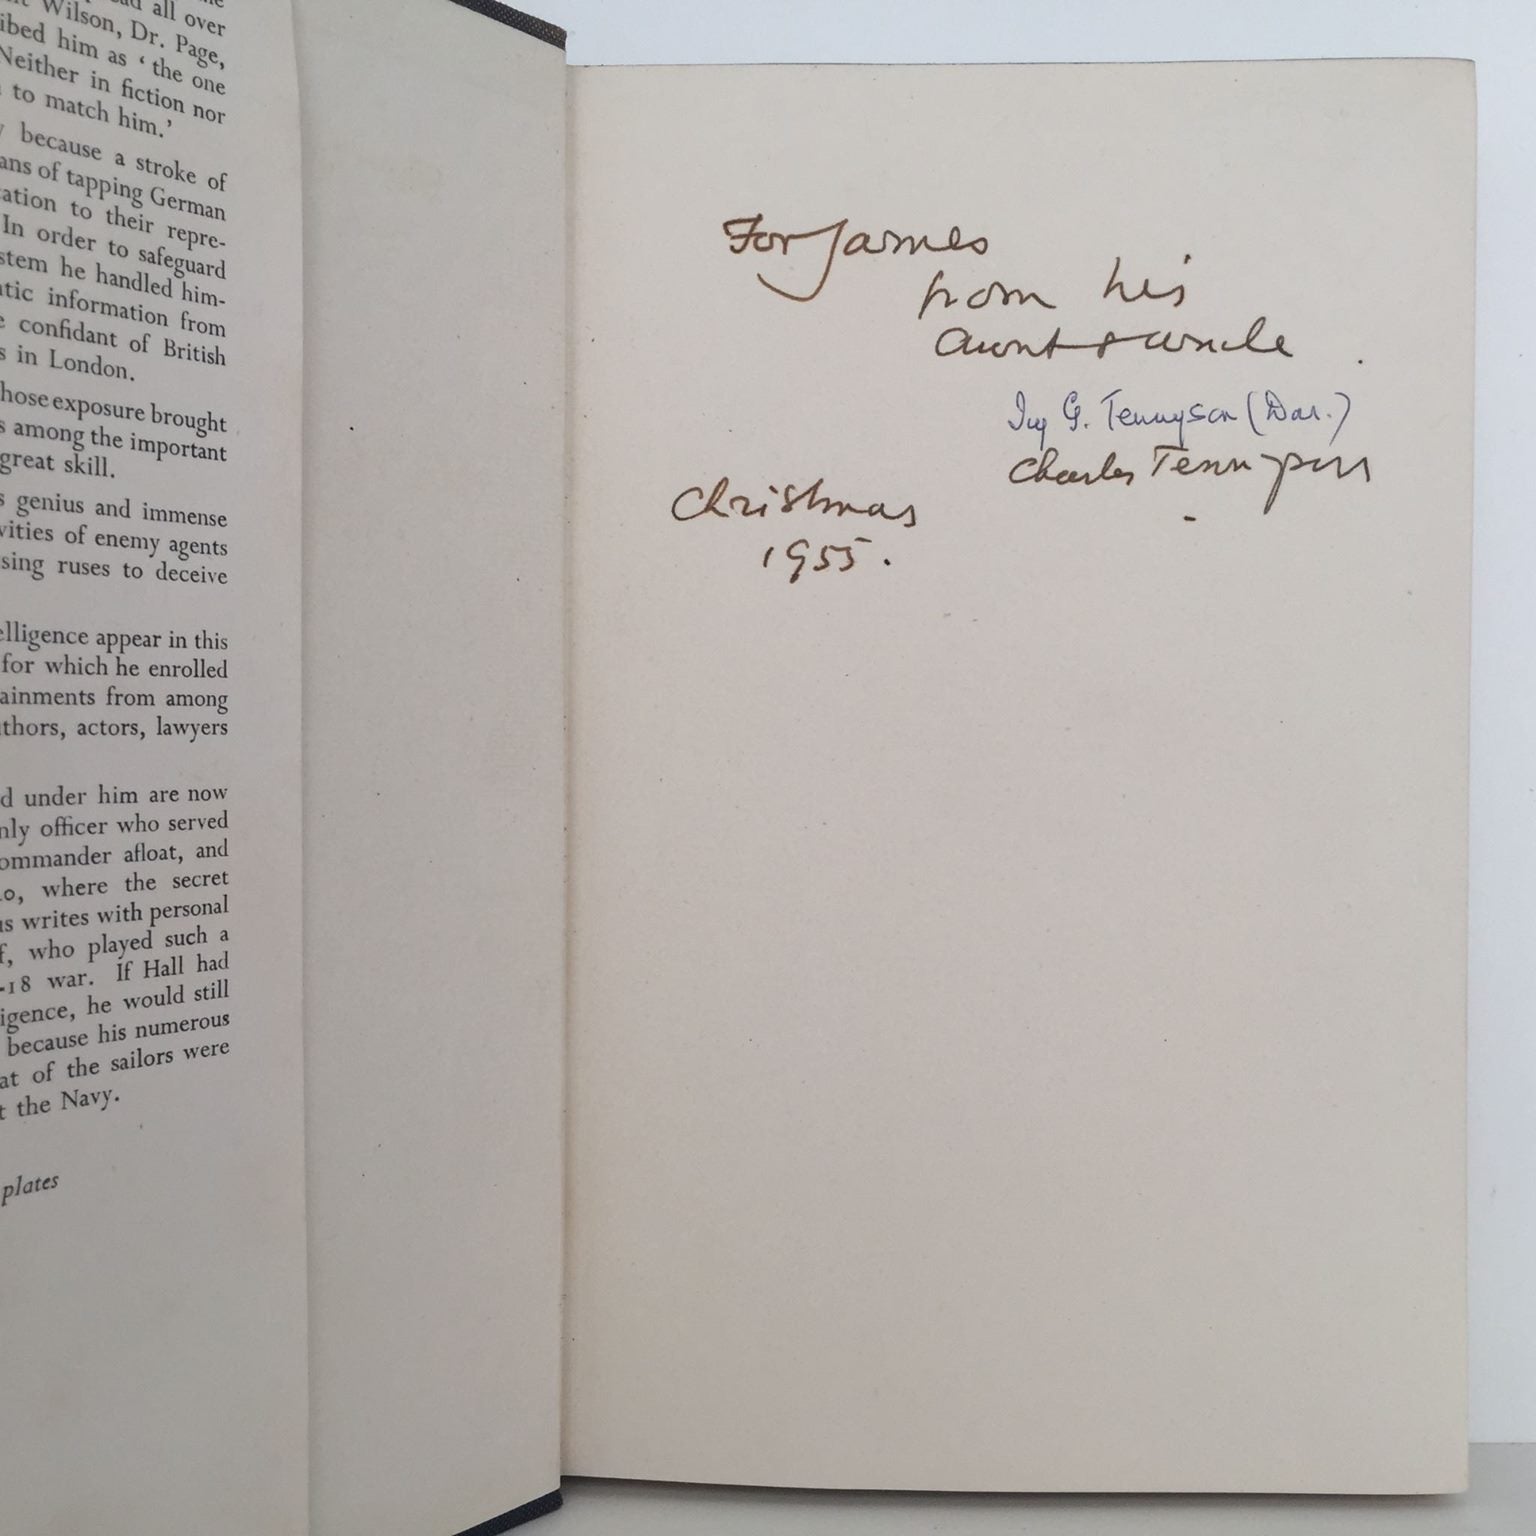 all over
Wilson, Dr. Page,
him as ‘ the one
Neither in fiction nor
to match him.’
because a stroke of
of tapping German
to their repre-
In order to safeguard
he handled him-
information from
confidant of British
in London.
exposure brought
among the important
great skill.
genius and immense
of enemy agents
ruses to deceive
appear in this
for which he enrolled
from among
actors, lawyers
under him are now
officer who served
afloat, and
where the secret
writes with personal
who played such a
-18 war. If Hall had
he would still
because his numerous
of the sailors were
the Navy.
plates
For James
from his
aunt & uncle .
Ivy G. Tennyson (Dar.)
Charles Tennyson
Christmas
1955.